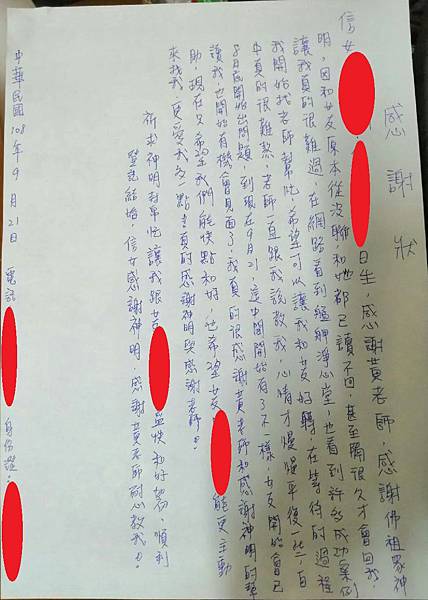 感謝狀
信女 日生,感謝黃老師,感謝佛祖眾神
明,因和女友原本從沒聊和她都已讀不回,甚至隔很久才會回我,
讓我真的很難過,在網路看到艋舺淨心堂,也看到許多成功案例
我開始找老師幫忙希望可以讓我和女友好轉,在等待的過程
中真的很難熬,老師一直跟我說教我,心情才慢慢平復一些,自
8月底開始出問題,到現在9月21,這中間開始有了不一樣,女友開始會已
讓我也開始有機會見面了,我真的很感謝黃老師和感謝神明的幫
助,現在又希望我們能快點和好,也希望女友 能更主動
來找我,更愛我多一點,真的感謝神明與感謝老師。
祈求神明幫忙讓我跟女友 盡快和好如初,順利
登記結婚,信女感謝神明,感謝黃老師耐心教我。
中華民國108年9月21日 電話 身份證: